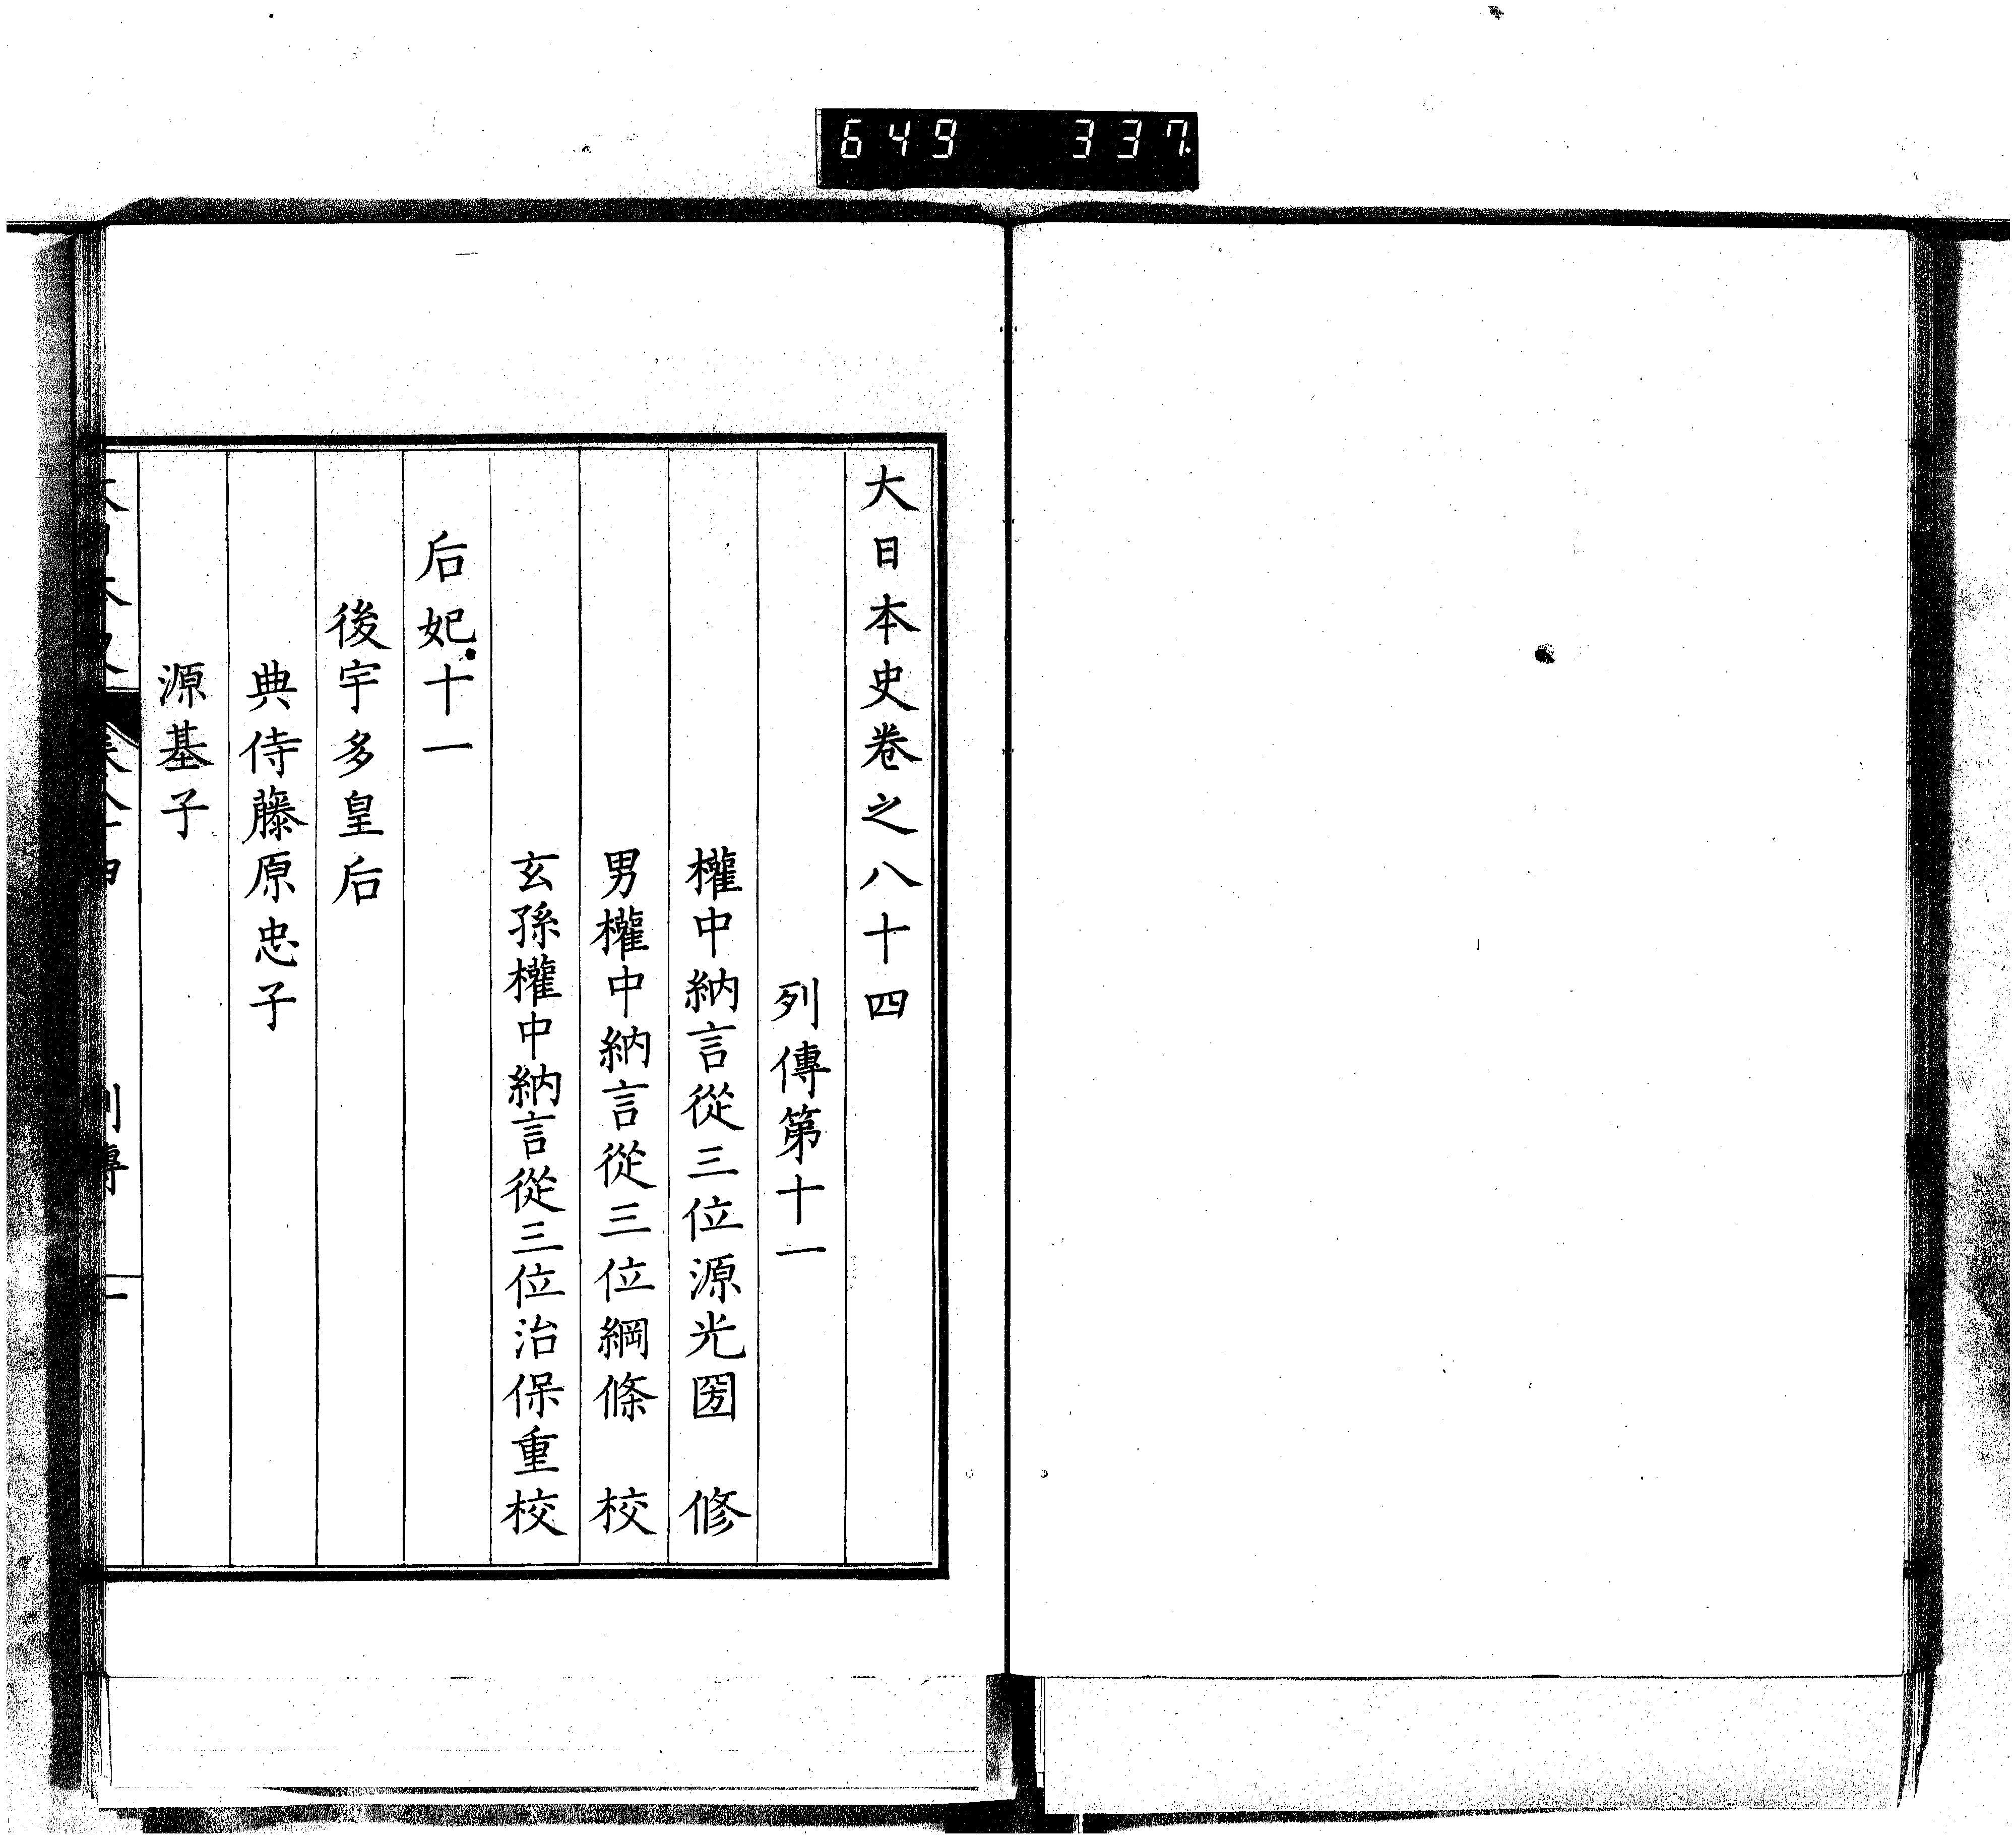 649 337
大日本史卷之八十四
列傳第十一
權中納言從三位源光圀 修
男權中納言從三位綱條 校
玄孫權中納言從三位治保重校
后妃十一
後宇多皇后
典侍藤原忠子
源基子